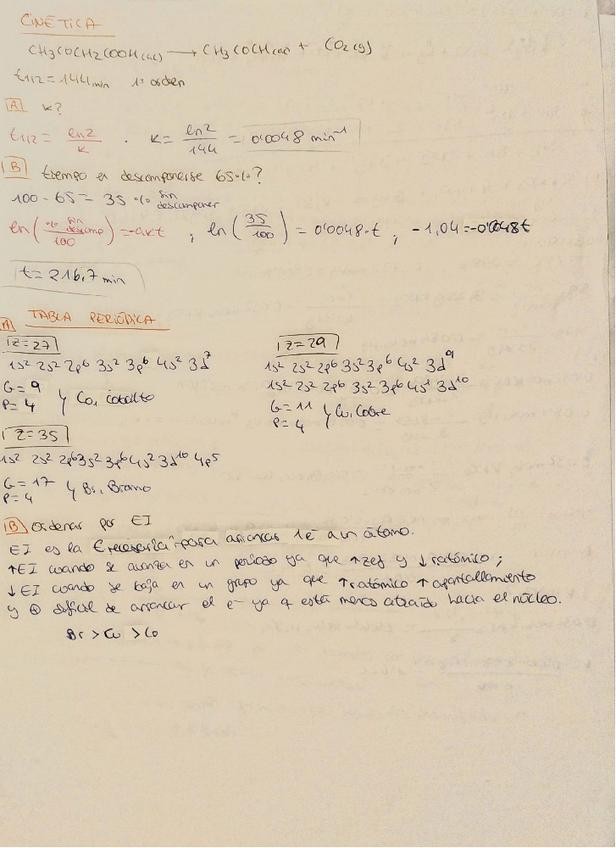 CINÉTICA
CH3COCH2COOH(ac) → CH3COCH(ac) + CO2(g)
t1/2 = 144 min 1º orden
A k?
t1/2 = ln2/k . k = ln2/144 = 0'0048 min⁻¹
B tiempo en descomponerse 65%?
100 - 65 = 35 % sin descomponer
ln(% sin descomp/100) = -akt ; ln(35/100) = 0'0048·t ; -1,04 = -0'0048t
t = 216,7 min
A TABLA PERIÓDICA
Z=27
1s² 2s² 2p⁶ 3s² 3p⁶ 4s² 3d⁷
G = 9
P = 4 } Co, cobalto
Z=29
1s² 2s² 2p⁶ 3s² 3p⁶ 4s² 3d⁹
1s² 2s² 2p⁶ 3s² 3p⁶ 4s¹ 3d¹⁰
G = 11
P = 4 } Cu, Cobre
Z=35
1s² 2s² 2p⁶ 3s² 3p⁶ 4s² 3d¹⁰ 4p⁵
G = 17
P = 4 } Br, Bromo
B Ordenar por EI
EI es la E necesaria para arrancar 1e⁻ a un átomo.
↑EI cuando se avanza en un periodo ya que ↑zef y ↓ratómico ;
↓EI cuando se baja en un grupo ya que ↑ratómico ↑apantallamiento
y ⊕ difícil de arrancar el e⁻ ya q está menos atraído hacia el núcleo.
Br > Cu > Co